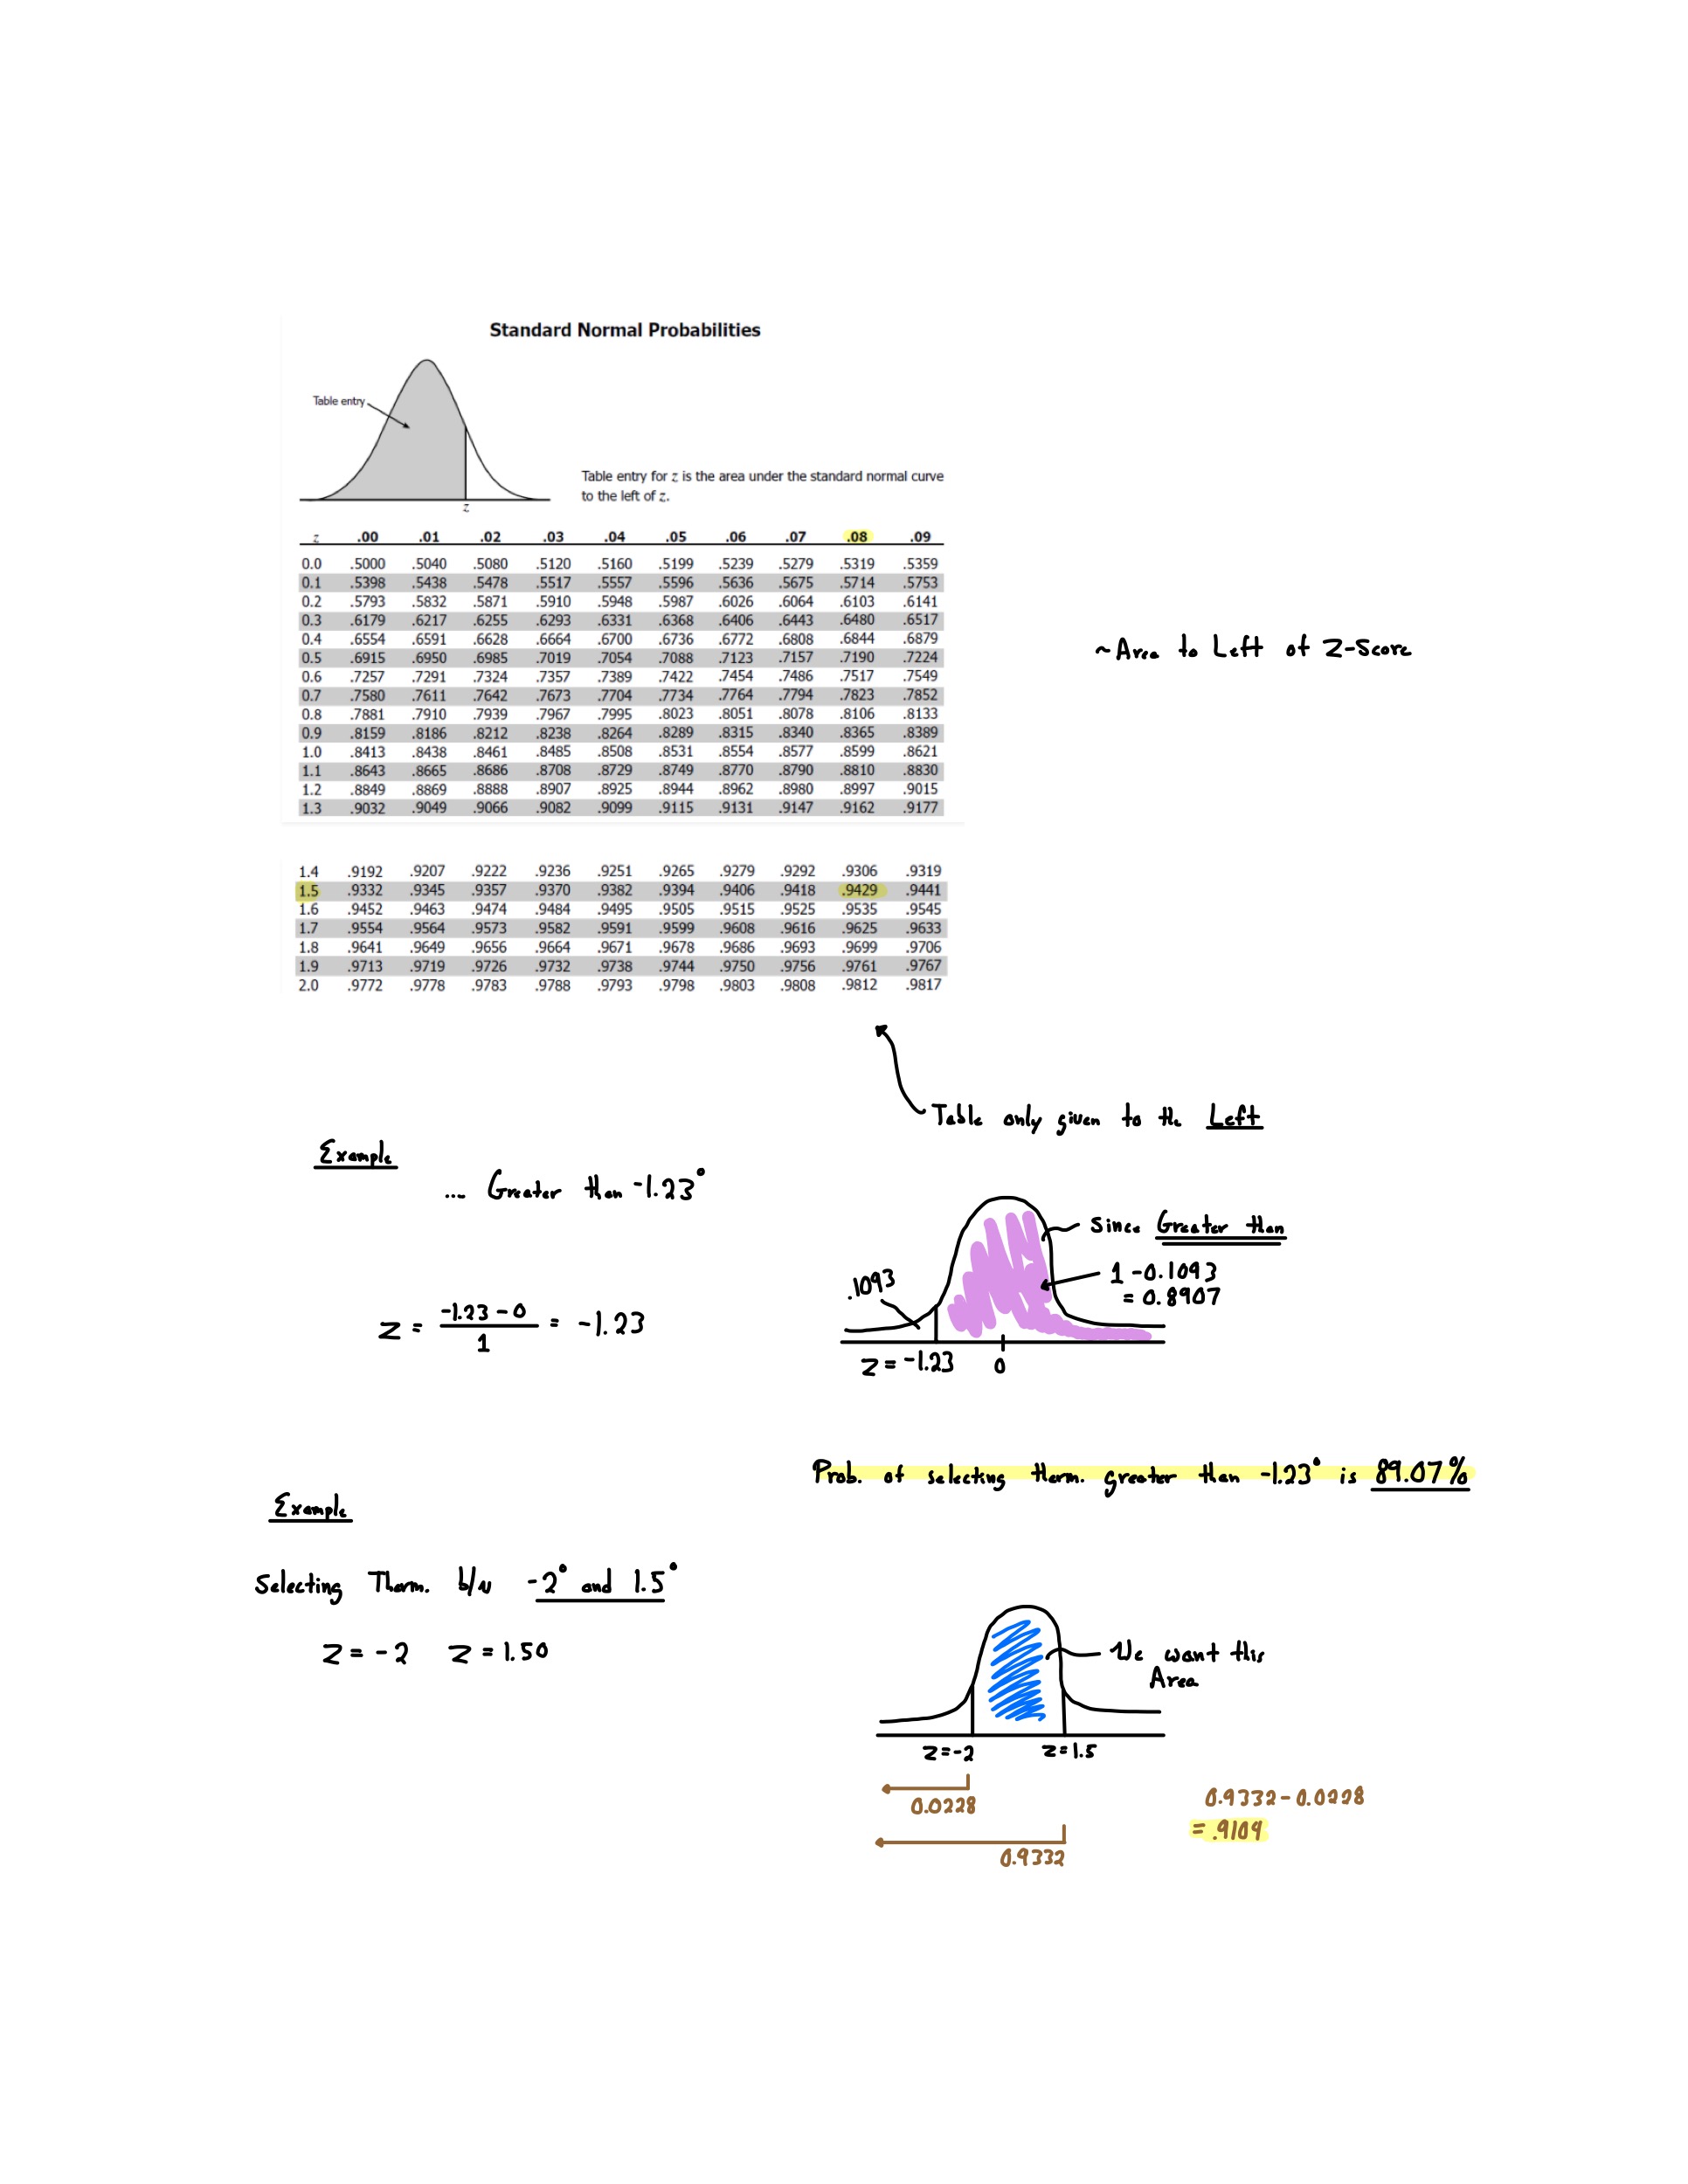 Standard Normal Probabilities
Table entry
Table entry for z is the area under the standard normal curve
to the left of z.
z
z .00 .01 .02 .03 .04 .05 .06 .07 .08 .09
0.0 .5000 .5040 .5080 .5120 .5160 .5199 .5239 .5279 .5319 .5359
0.1 .5398 .5438 .5478 .5517 .5557 .5596 .5636 .5675 .5714 .5753
0.2 .5793 .5832 .5871 .5910 .5948 .5987 .6026 .6064 .6103 .6141
0.3 .6179 .6217 .6255 .6293 .6331 .6368 .6406 .6443 .6480 .6517
0.4 .6554 .6591 .6628 .6664 .6700 .6736 .6772 .6808 .6844 .6879
0.5 .6915 .6950 .6985 .7019 .7054 .7088 .7123 .7157 .7190 .7224
0.6 .7257 .7291 .7324 .7357 .7389 .7422 .7454 .7486 .7517 .7549
0.7 .7580 .7611 .7642 .7673 .7704 .7734 .7764 .7794 .7823 .7852
0.8 .7881 .7910 .7939 .7967 .7995 .8023 .8051 .8078 .8106 .8133
0.9 .8159 .8186 .8212 .8238 .8264 .8289 .8315 .8340 .8365 .8389
1.0 .8413 .8438 .8461 .8485 .8508 .8531 .8554 .8577 .8599 .8621
1.1 .8643 .8665 .8686 .8708 .8729 .8749 .8770 .8790 .8810 .8830
1.2 .8849 .8869 .8888 .8907 .8925 .8944 .8962 .8980 .8997 .9015
1.3 .9032 .9049 .9066 .9082 .9099 .9115 .9131 .9147 .9162 .9177
~Area to Left of Z-Score
1.4 .9192 .9207 .9222 .9236 .9251 .9265 .9279 .9292 .9306 .9319
1.5 .9332 .9345 .9357 .9370 .9382 .9394 .9406 .9418 .9429 .9441
1.6 .9452 .9463 .9474 .9484 .9495 .9505 .9515 .9525 .9535 .9545
1.7 .9554 .9564 .9573 .9582 .9591 .9599 .9608 .9616 .9625 .9633
1.8 .9641 .9649 .9656 .9664 .9671 .9678 .9686 .9693 .9699 .9706
1.9 .9713 .9719 .9726 .9732 .9738 .9744 .9750 .9756 .9761 .9767
2.0 .9772 .9778 .9783 .9788 .9793 .9798 .9803 .9808 .9812 .9817
Table only given to the Left
Example
... Greater than -1.23°
Z = -1.23 - 0 / 1 = -1.23
Since Greater than
1 - 0.1093
= 0.8907
.1093
Z = -1.23 0
Prob. of selecting therm. greater than -1.23° is 89.07%
Example
Selecting Therm. b/w -2° and 1.5°
Z = -2 Z = 1.50
We want this
Area
Z=-2 Z=1.5
0.0228
0.9332
0.9332 - 0.0228
= .9104